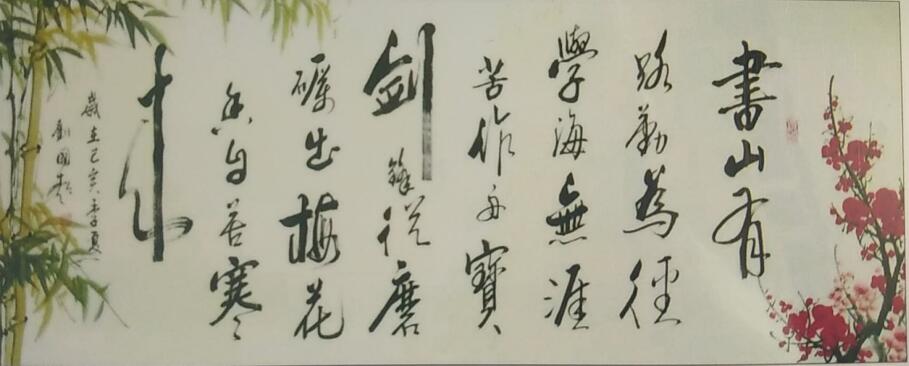 書山有
路勤為徑
學海無涯
苦作舟寶
劍鋒從磨
礪出梅花
香自苦寒
來
歲在己亥季夏
劉國